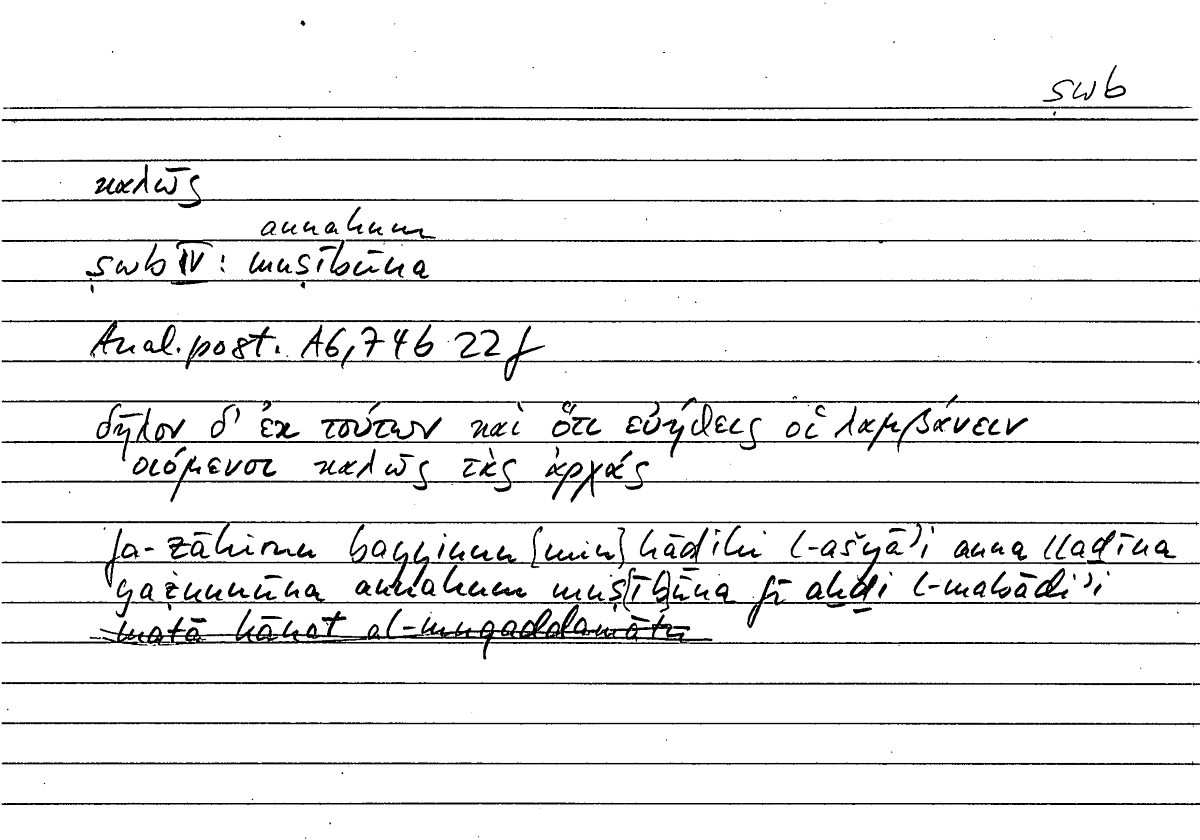 ṣwb
καλῶς
annahum
ṣwb IV: muṣībūna
Anal. post. A6, 74b 22 f
δῆλον δ' ἐκ τούτων καὶ ὅτι εὐήθεις οἱ λαμβάνειν
οἰόμενοι καλῶς τὰς ἀρχάς
fa-ẓāhirun bayyinun [min] hāḏihi l-ašyāʾi anna llaḏīna
yaẓunnūna annahum muṣ[īb]ūna fī aḫḏi l-mabādiʾi
matā kānat al-muqaddamātu